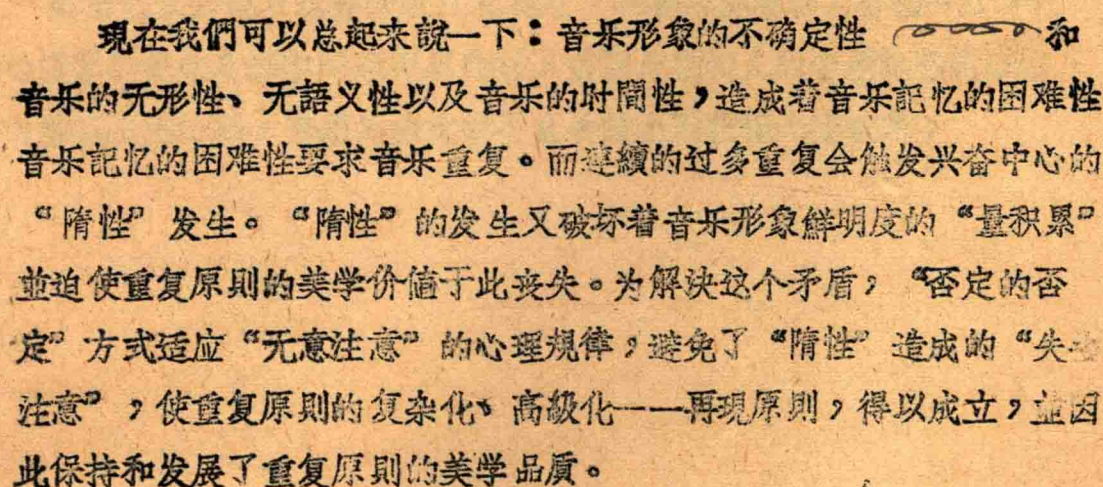 現在我們可以总起来說一下：音乐形象的不确定性 和
音乐的无形性、无語义性以及音乐的时間性，造成着音乐記忆的困难性
音乐記忆的困难性要求音乐重复。而連續的过多重复会触发兴奋中心的
“隋性”发生。“隋性”的发生又破坏着音乐形象鮮明度的“量积累”
並迫使重复原則的美学价値于此丧失。为解决这个矛盾，“否定的否
定”方式适应“无意注意”的心理規律，避免了“隋性”造成的“失去
注意”，使重复原則的复杂化、高級化——再現原則，得以成立，並因
此保持和发展了重复原則的美学品质。